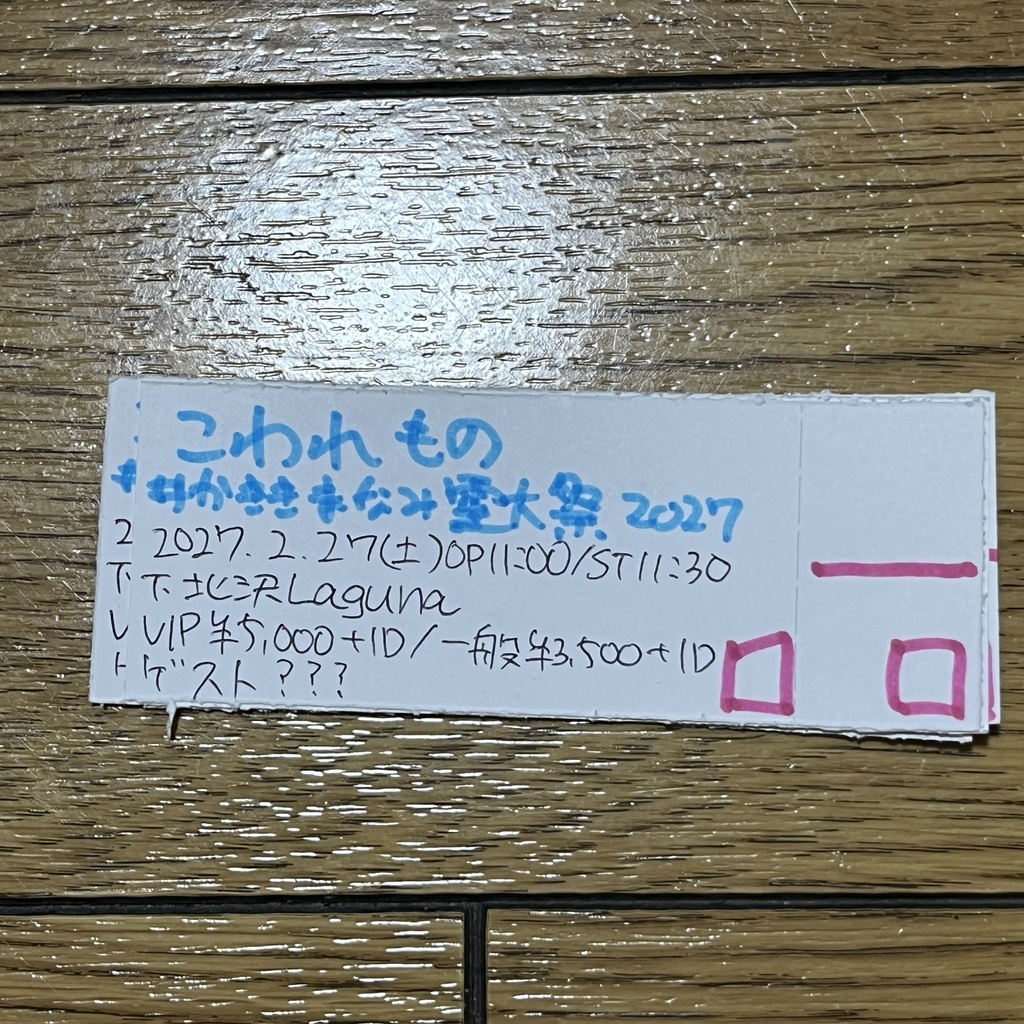 こわれもの
#かききまなみ霊大祭 2027
2027.2.27(土)OP11:00/ST11:30
下北沢Laguna
VIP ¥5,000+1D/一般¥3,500+1D
ゲスト???